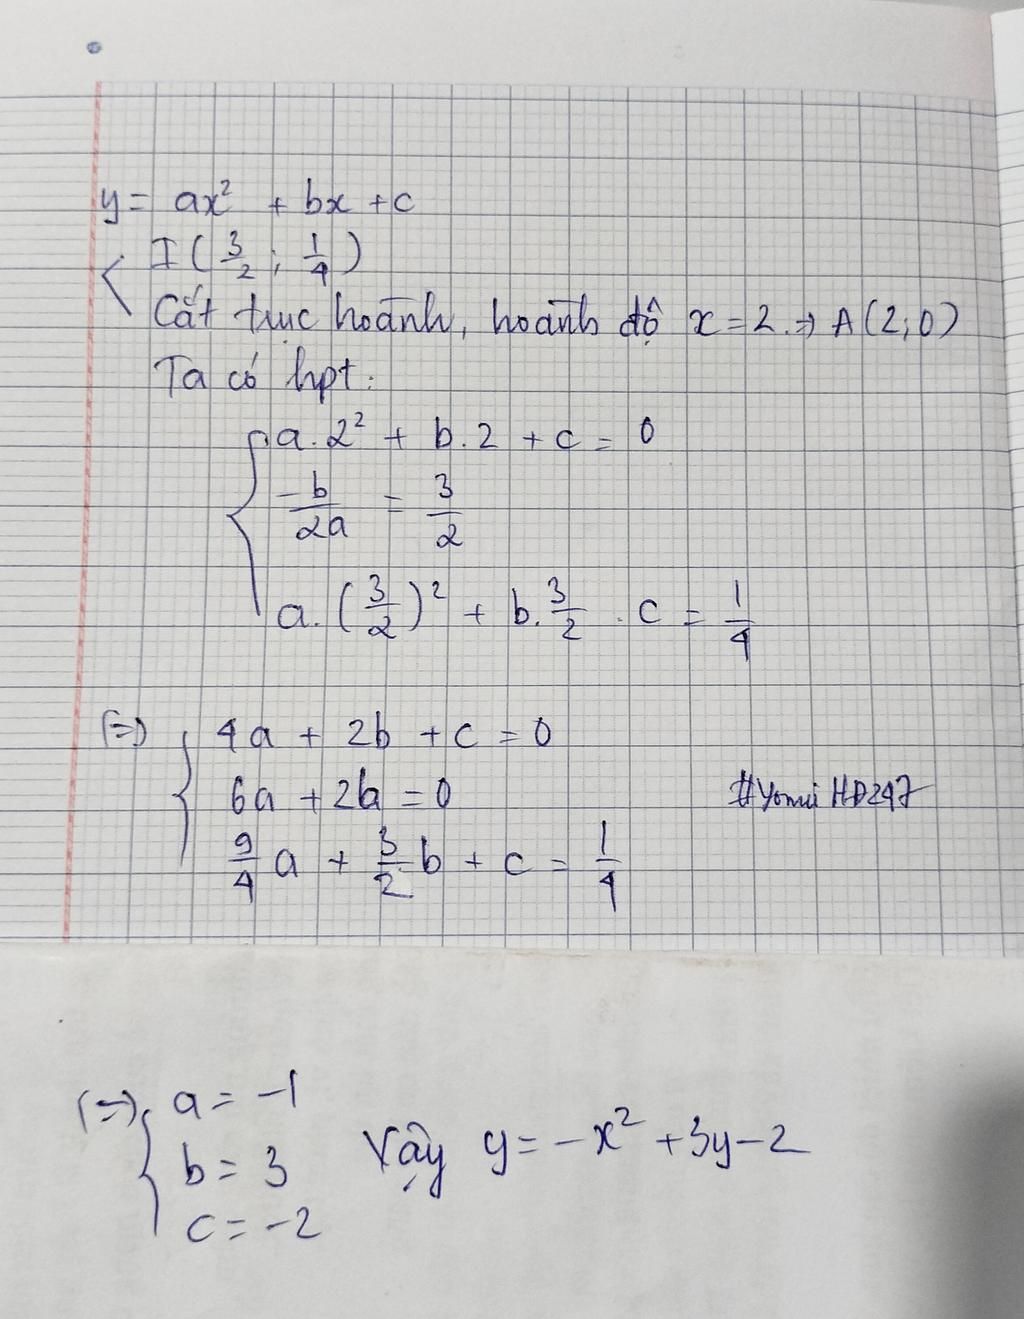 y = ax² + bx + c
I ( 3/2 ; 1/4 )
Cắt trục hoành, hoành độ x = 2. => A(2;0)
Ta có hpt:
a.2² + b.2 + c = 0
-b/2a = 3/2
a.(3/2)² + b.3/2 . c = 1/4
(=) 4a + 2b + c = 0
6a + 2b = 0
#Yomii HD247
9/4 a + 3/2 b + c = 1/4
(=) a = -1
b = 3 Vậy y = -x² + 3y - 2
c = -2